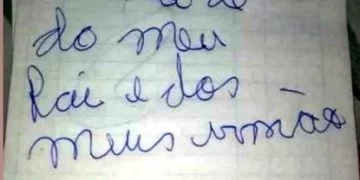 do meu
Pai e dos
meus irmãos